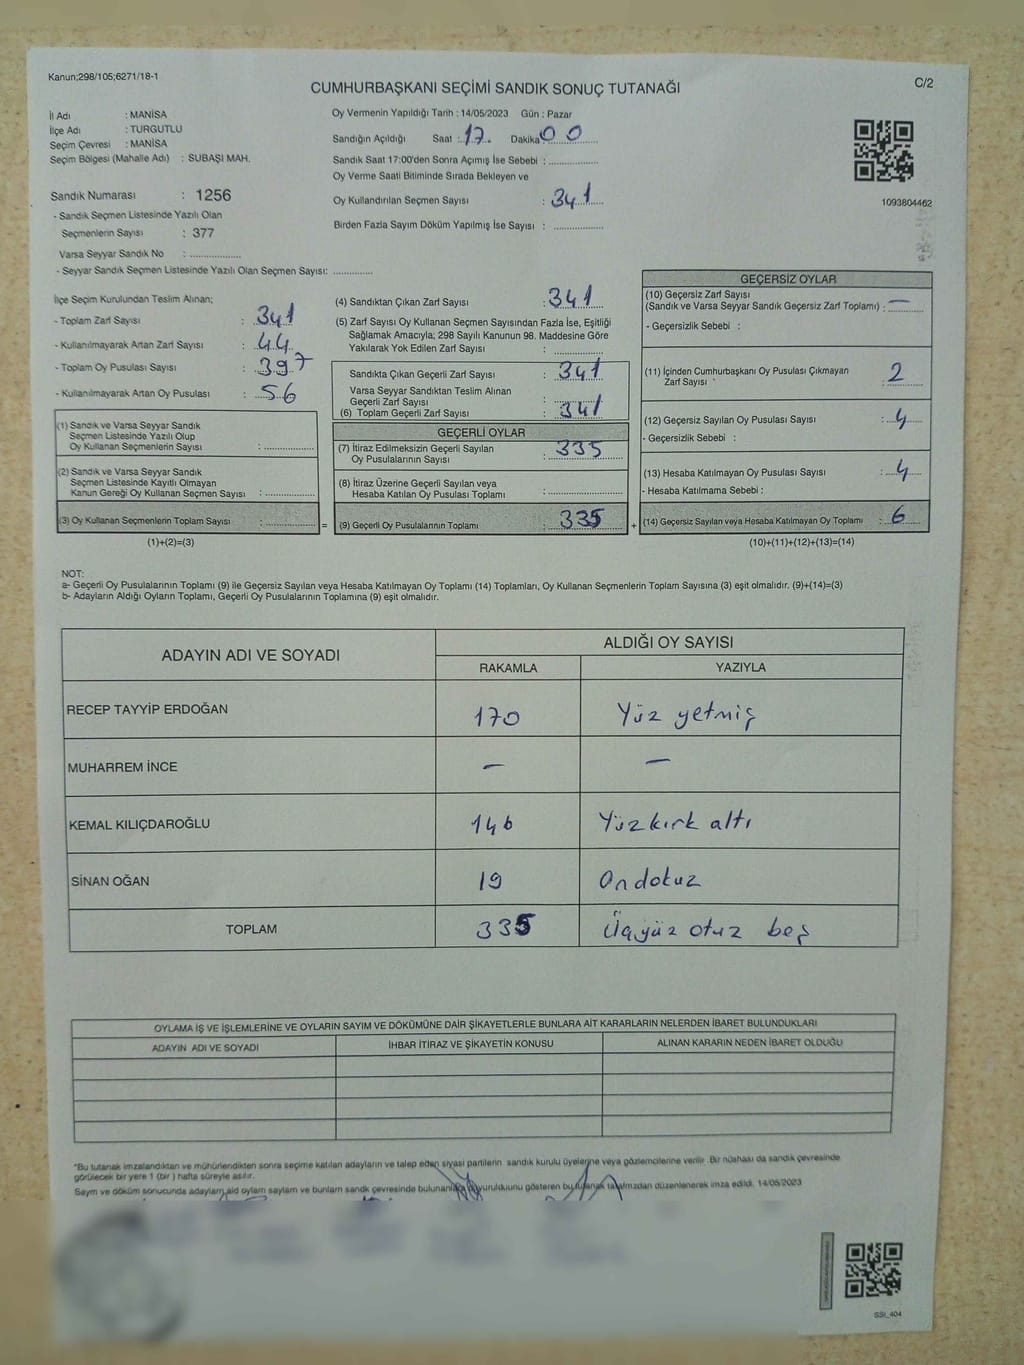 Kanun;298/105;6271/18-1
C/2
CUMHURBAŞKANI SEÇİMİ SANDIK SONUÇ TUTANAĞI
İl Adı : MANİSA
İlçe Adı : TURGUTLU
Seçim Çevresi : MANİSA
Seçim Bölgesi (Mahalle Adı) : SUBAŞI MAH.
Sandık Numarası : 1256
- Sandık Seçmen Listesinde Yazılı Olan
Seçmenlerin Sayısı : 377
Varsa Seyyar Sandık No : ..................
- Seyyar Sandık Seçmen Listesinde Yazılı Olan Seçmen Sayısı: .............
Oy Vermenin Yapıldığı Tarih : 14/05/2023 Gün : Pazar
Sandığın Açıldığı Saat : 17 Dakika 00
Sandık Saat 17:00'den Sonra Açımış İse Sebebi : ..................
Oy Verme Saati Bitiminde Sırada Bekleyen ve
Oy Kullandırılan Seçmen Sayısı : 341
Birden Fazla Sayım Döküm Yapılmış İse Sayısı : ..................
1093804462
İlçe Seçim Kurulundan Teslim Alınan;
- Toplam Zarf Sayısı : 341
- Kullanılmayarak Artan Zarf Sayısı : 44
- Toplam Oy Pusulası Sayısı : 397
- Kullanılmayarak Artan Oy Pusulası : 56
(1) Sandık ve Varsa Seyyar Sandık
Seçmen Listesinde Yazılı Olup
Oy Kullanan Seçmenlerin Sayısı : ..................
(2) Sandık ve Varsa Seyyar Sandık
Seçmen Listesinde Kayıtlı Olmayan
Kanun Gereği Oy Kullanan Seçmen Sayısı : ..................
(3) Oy Kullanan Seçmenlerin Toplam Sayısı : ..................
(1)+(2)=(3)
(4) Sandıktan Çıkan Zarf Sayısı : 341
(5) Zarf Sayısı Oy Kullanan Seçmen Sayısından Fazla İse, Eşitliği
Sağlamak Amacıyla; 298 Sayılı Kanunun 98. Maddesine Göre
Yakılarak Yok Edilen Zarf Sayısı : ..................
Sandıkta Çıkan Geçerli Zarf Sayısı : 341
Varsa Seyyar Sandıktan Teslim Alınan
Geçerli Zarf Sayısı : ..................
(6) Toplam Geçerli Zarf Sayısı : 341
GEÇERLİ OYLAR
(7) İtiraz Edilmeksizin Geçerli Sayılan
Oy Pusulalarının Sayısı : 335
(8) İtiraz Üzerine Geçerli Sayılan veya
Hesaba Katılan Oy Pusulası Toplamı : ..................
= (9) Geçerli Oy Pusulalarının Toplamı : 335 +
GEÇERSİZ OYLAR
(10) Geçersiz Zarf Sayısı
(Sandık ve Varsa Seyyar Sandık Geçersiz Zarf Toplamı) : —
- Geçersizlik Sebebi :
(11) İçinden Cumhurbaşkanı Oy Pusulası Çıkmayan
Zarf Sayısı : 2
(12) Geçersiz Sayılan Oy Pusulası Sayısı : 4
- Geçersizlik Sebebi :
(13) Hesaba Katılmayan Oy Pusulası Sayısı : 4
- Hesaba Katılmama Sebebi :
(14) Geçersiz Sayılan veya Hesaba Katılmayan Oy Toplamı : 6
(10)+(11)+(12)+(13)=(14)
NOT:
a- Geçerli Oy Pusulalarının Toplamı (9) ile Geçersiz Sayılan veya Hesaba Katılmayan Oy Toplamı (14) Toplamları, Oy Kullanan Seçmenlerin Toplam Sayısına (3) eşit olmalıdır. (9)+(14)=(3)
b- Adayların Aldığı Oyların Toplamı, Geçerli Oy Pusulalarının Toplamına (9) eşit olmalıdır.
ADAYIN ADI VE SOYADI
ALDIĞI OY SAYISI
RAKAMLA YAZIYLA
RECEP TAYYİP ERDOĞAN 170 Yüz yetmiş
MUHARREM İNCE — —
KEMAL KILIÇDAROĞLU 146 Yüzkırk altı
SİNAN OĞAN 19 Ondokuz
TOPLAM 335 Üçyüz otuz beş
OYLAMA İŞ VE İŞLEMLERİNE VE OYLARIN SAYIM VE DÖKÜMÜNE DAİR ŞİKAYETLERLE BUNLARA AİT KARARLARIN NELERDEN İBARET BULUNDUKLARI
ADAYIN ADI VE SOYADI İHBAR İTİRAZ VE ŞİKAYETİN KONUSU ALINAN KARARIN NEDEN İBARET OLDUĞU
"Bu tutanak imzalandıktan ve mühürlendikten sonra seçime katılan adayların ve talep eden siyasi partilerin sandık kurulu üyelerine veya gözlemcilerine verilir. Bir nüshası da sandık çevresinde
görülecek bir yere 1 (bir) hafta süreyle asılır.
Sayım ve döküm sonucunda adayların, ald oyların saylam ve bunların sandık çevresinde bulunanlara duyurulduunu gösteren bu tutanak tarafımızdan düzenlenerek imza edildi. 14/05/2023
SSI_404